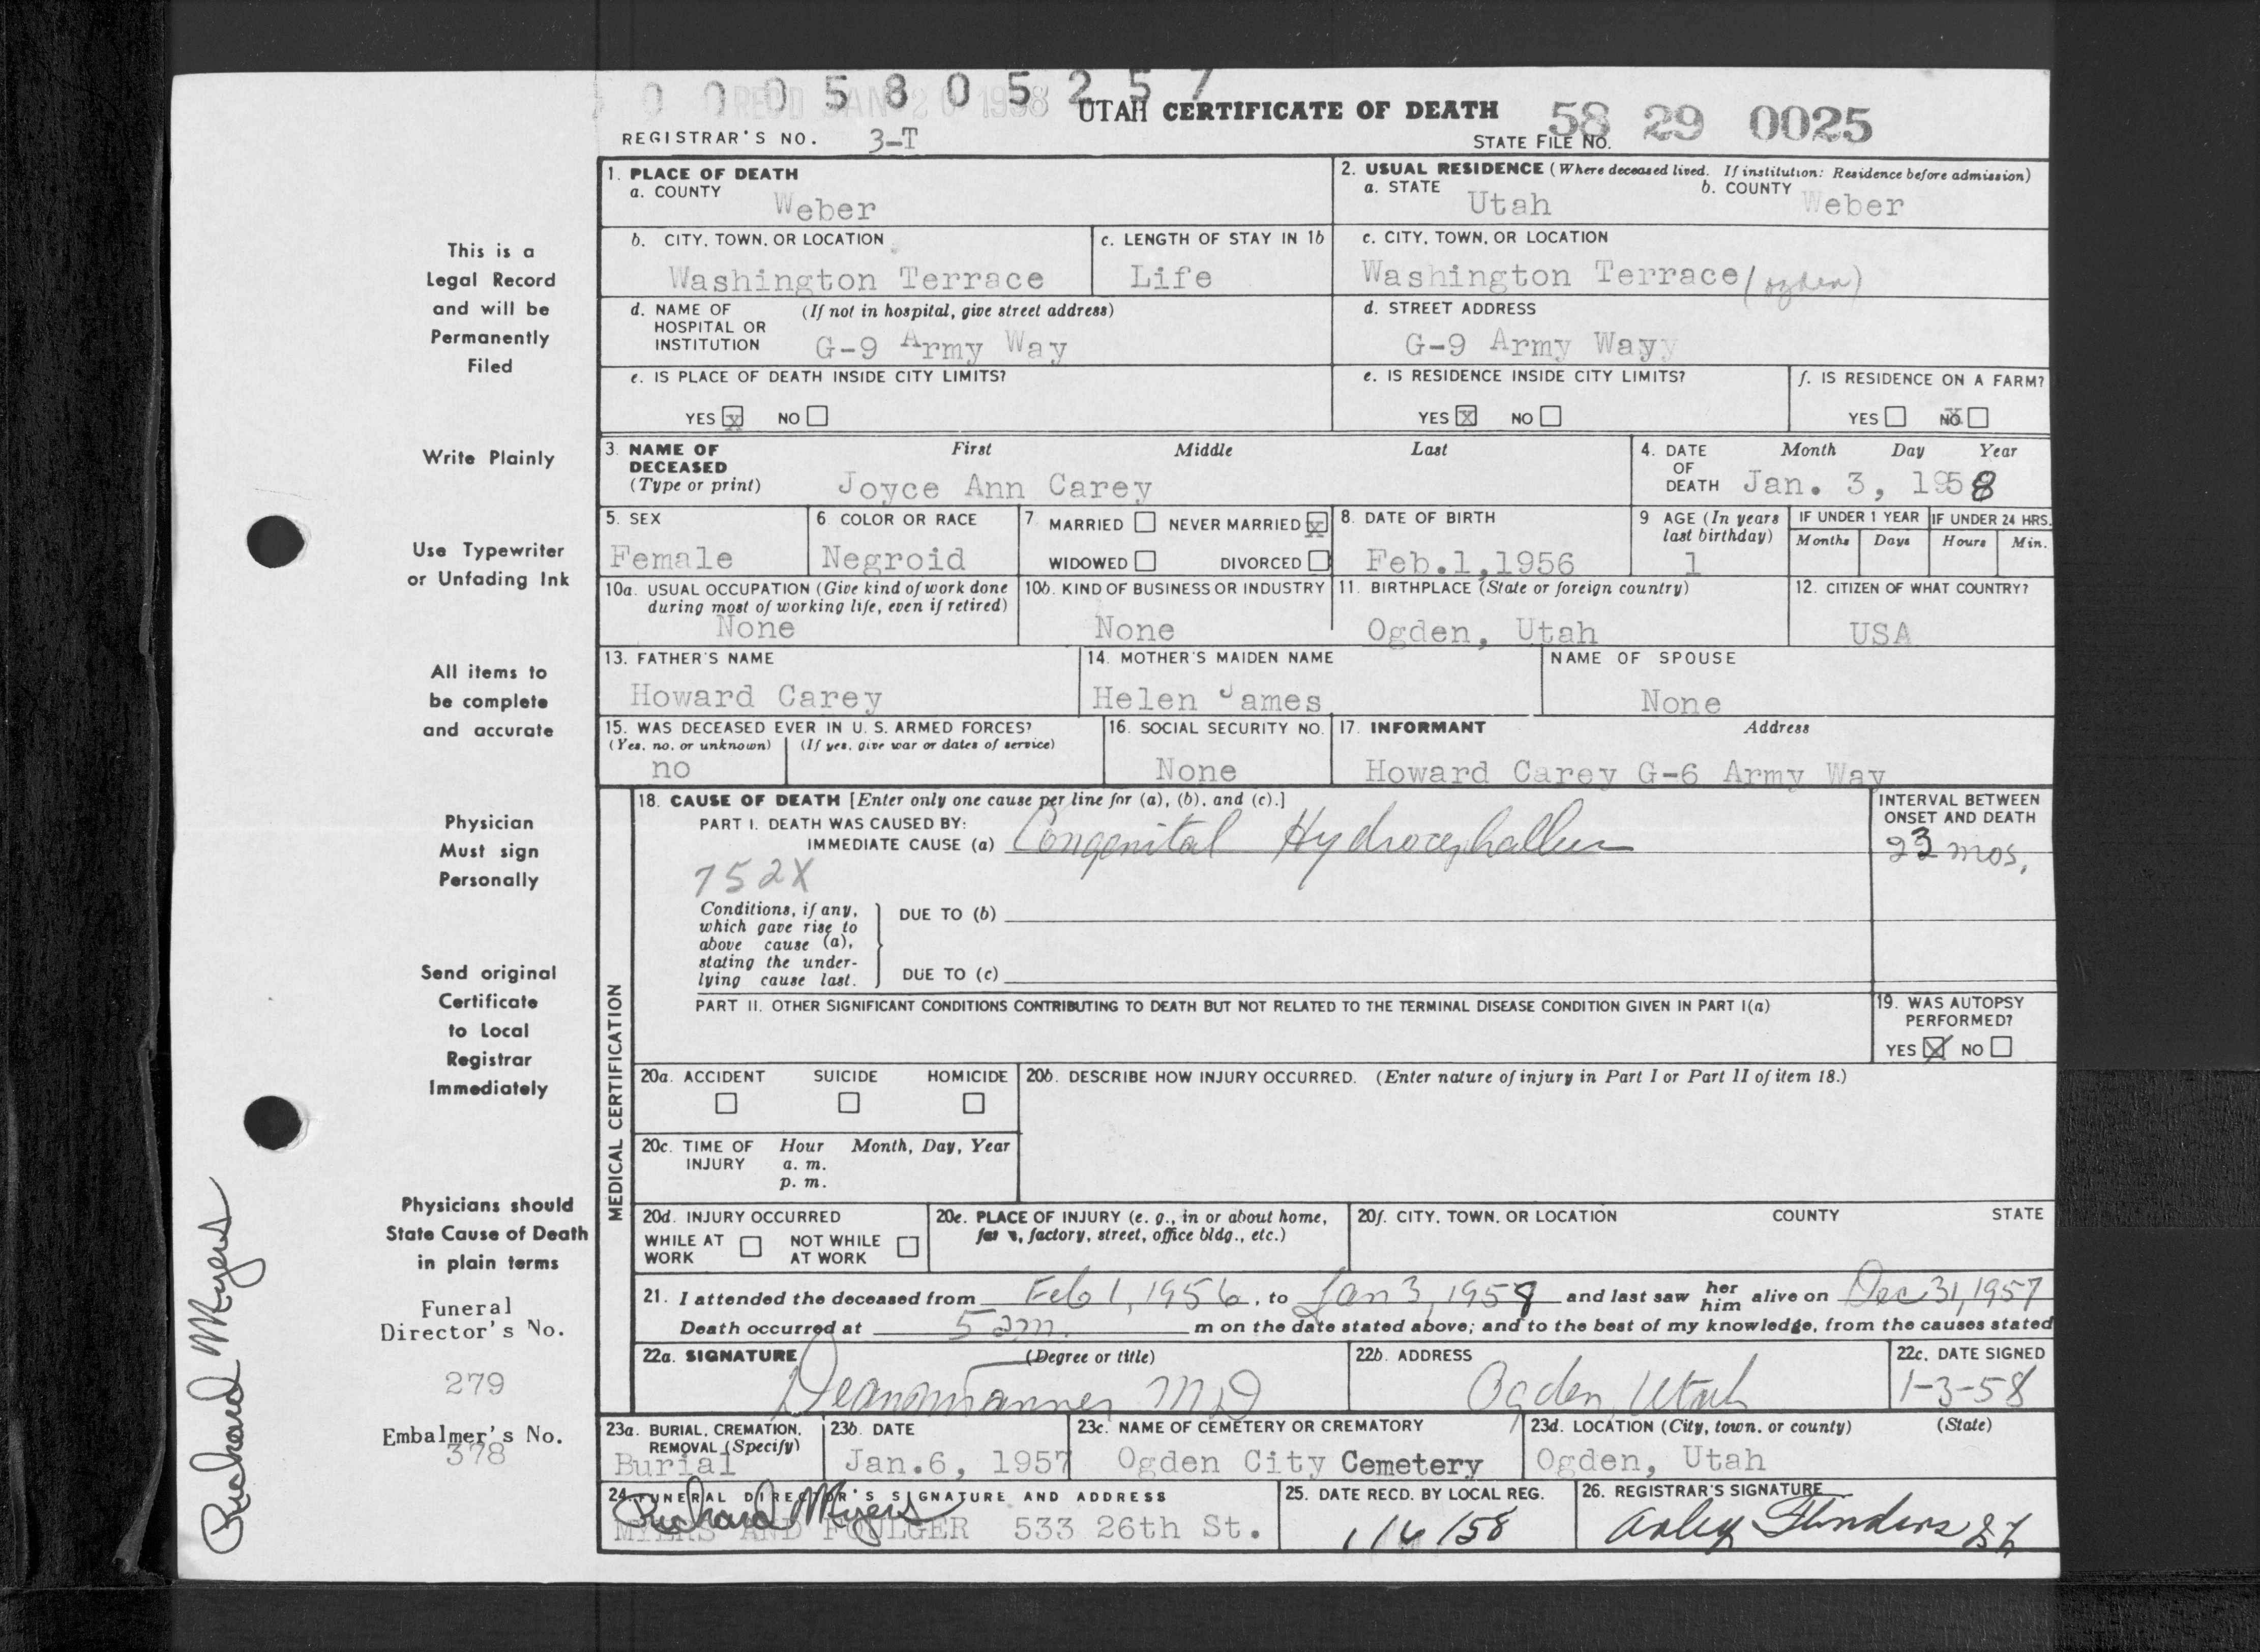 0 0 0 5 8 0 5 2 5 7
REC'D JAN 20 1958
UTAH CERTIFICATE OF DEATH
58 29 0025
REGISTRAR'S NO. 3-T
STATE FILE NO.
1. PLACE OF DEATH
a. COUNTY
Weber
2. USUAL RESIDENCE (Where deceased lived. If institution: Residence before admission)
a. STATE Utah b. COUNTY Weber
b. CITY, TOWN, OR LOCATION
Washington Terrace
c. LENGTH OF STAY IN 1b
Life
c. CITY, TOWN, OR LOCATION
Washington Terrace (ogden)
d. NAME OF (If not in hospital, give street address)
HOSPITAL OR
INSTITUTION G-9 Army Way
d. STREET ADDRESS
G-9 Army Wayy
e. IS PLACE OF DEATH INSIDE CITY LIMITS?
YES X NO
e. IS RESIDENCE INSIDE CITY LIMITS?
YES X NO
f. IS RESIDENCE ON A FARM?
YES NO X
3. NAME OF DECEASED First Middle Last
(Type or print) Joyce Ann Carey
4. DATE OF DEATH Month Day Year
Jan. 3, 1958
5. SEX
Female
6 COLOR OR RACE
Negroid
7 MARRIED NEVER MARRIED X
WIDOWED DIVORCED
8. DATE OF BIRTH
Feb.1,1956
9 AGE (In years last birthday)
1
IF UNDER 1 YEAR
Months Days
IF UNDER 24 HRS.
Hours Min.
10a. USUAL OCCUPATION (Give kind of work done during most of working life, even if retired)
None
10b. KIND OF BUSINESS OR INDUSTRY
None
11. BIRTHPLACE (State or foreign country)
Ogden, Utah
12. CITIZEN OF WHAT COUNTRY?
USA
13. FATHER'S NAME
Howard Carey
14. MOTHER'S MAIDEN NAME
Helen James
NAME OF SPOUSE
None
15. WAS DECEASED EVER IN U. S. ARMED FORCES?
(Yes, no, or unknown) (If yes, give war or dates of service)
no
16. SOCIAL SECURITY NO.
None
17. INFORMANT Address
Howard Carey G-6 Army Way
MEDICAL CERTIFICATION
18. CAUSE OF DEATH [Enter only one cause per line for (a), (b), and (c).]
PART I. DEATH WAS CAUSED BY:
IMMEDIATE CAUSE (a) Congenital Hydrocephallus
INTERVAL BETWEEN ONSET AND DEATH
23 mos,
752X
Conditions, if any, which gave rise to above cause (a), stating the under-lying cause last.
DUE TO (b)
DUE TO (c)
PART II. OTHER SIGNIFICANT CONDITIONS CONTRIBUTING TO DEATH BUT NOT RELATED TO THE TERMINAL DISEASE CONDITION GIVEN IN PART I(a)
19. WAS AUTOPSY PERFORMED?
YES X NO
20a. ACCIDENT SUICIDE HOMICIDE
20b. DESCRIBE HOW INJURY OCCURRED. (Enter nature of injury in Part I or Part II of item 18.)
20c. TIME OF INJURY Hour Month, Day, Year
a. m.
p. m.
20d. INJURY OCCURRED
WHILE AT WORK NOT WHILE AT WORK
20e. PLACE OF INJURY (e. g., in or about home, farm, factory, street, office bldg., etc.)
20f. CITY, TOWN, OR LOCATION COUNTY STATE
21. I attended the deceased from Feb 1, 1956, to Jan 3, 1958 and last saw her him alive on Dec 31, 1957
Death occurred at 5 am. m on the date stated above; and to the best of my knowledge, from the causes stated
22a. SIGNATURE (Degree or title)
Dean Tanner MD
22b. ADDRESS
Ogden, Utah
22c. DATE SIGNED
1-3-58
23a. BURIAL, CREMATION, REMOVAL (Specify)
Burial
23b. DATE
Jan.6, 1957
23c. NAME OF CEMETERY OR CREMATORY
Ogden City Cemetery
23d. LOCATION (City, town, or county) (State)
Ogden, Utah
24. FUNERAL DIRECTOR'S SIGNATURE AND ADDRESS
Richard Myers
MYERS AND FOULGER 533 26th St.
25. DATE RECD. BY LOCAL REG.
1/6/58
26. REGISTRAR'S SIGNATURE
Arley Flinders
This is a
Legal Record
and will be
Permanently
Filed
Write Plainly
Use Typewriter
or Unfading Ink
All items to
be complete
and accurate
Physician
Must sign
Personally
Send original
Certificate
to Local
Registrar
Immediately
Physicians should
State Cause of Death
in plain terms
Funeral
Director's No.
279
Embalmer's No.
378
Richard Myers